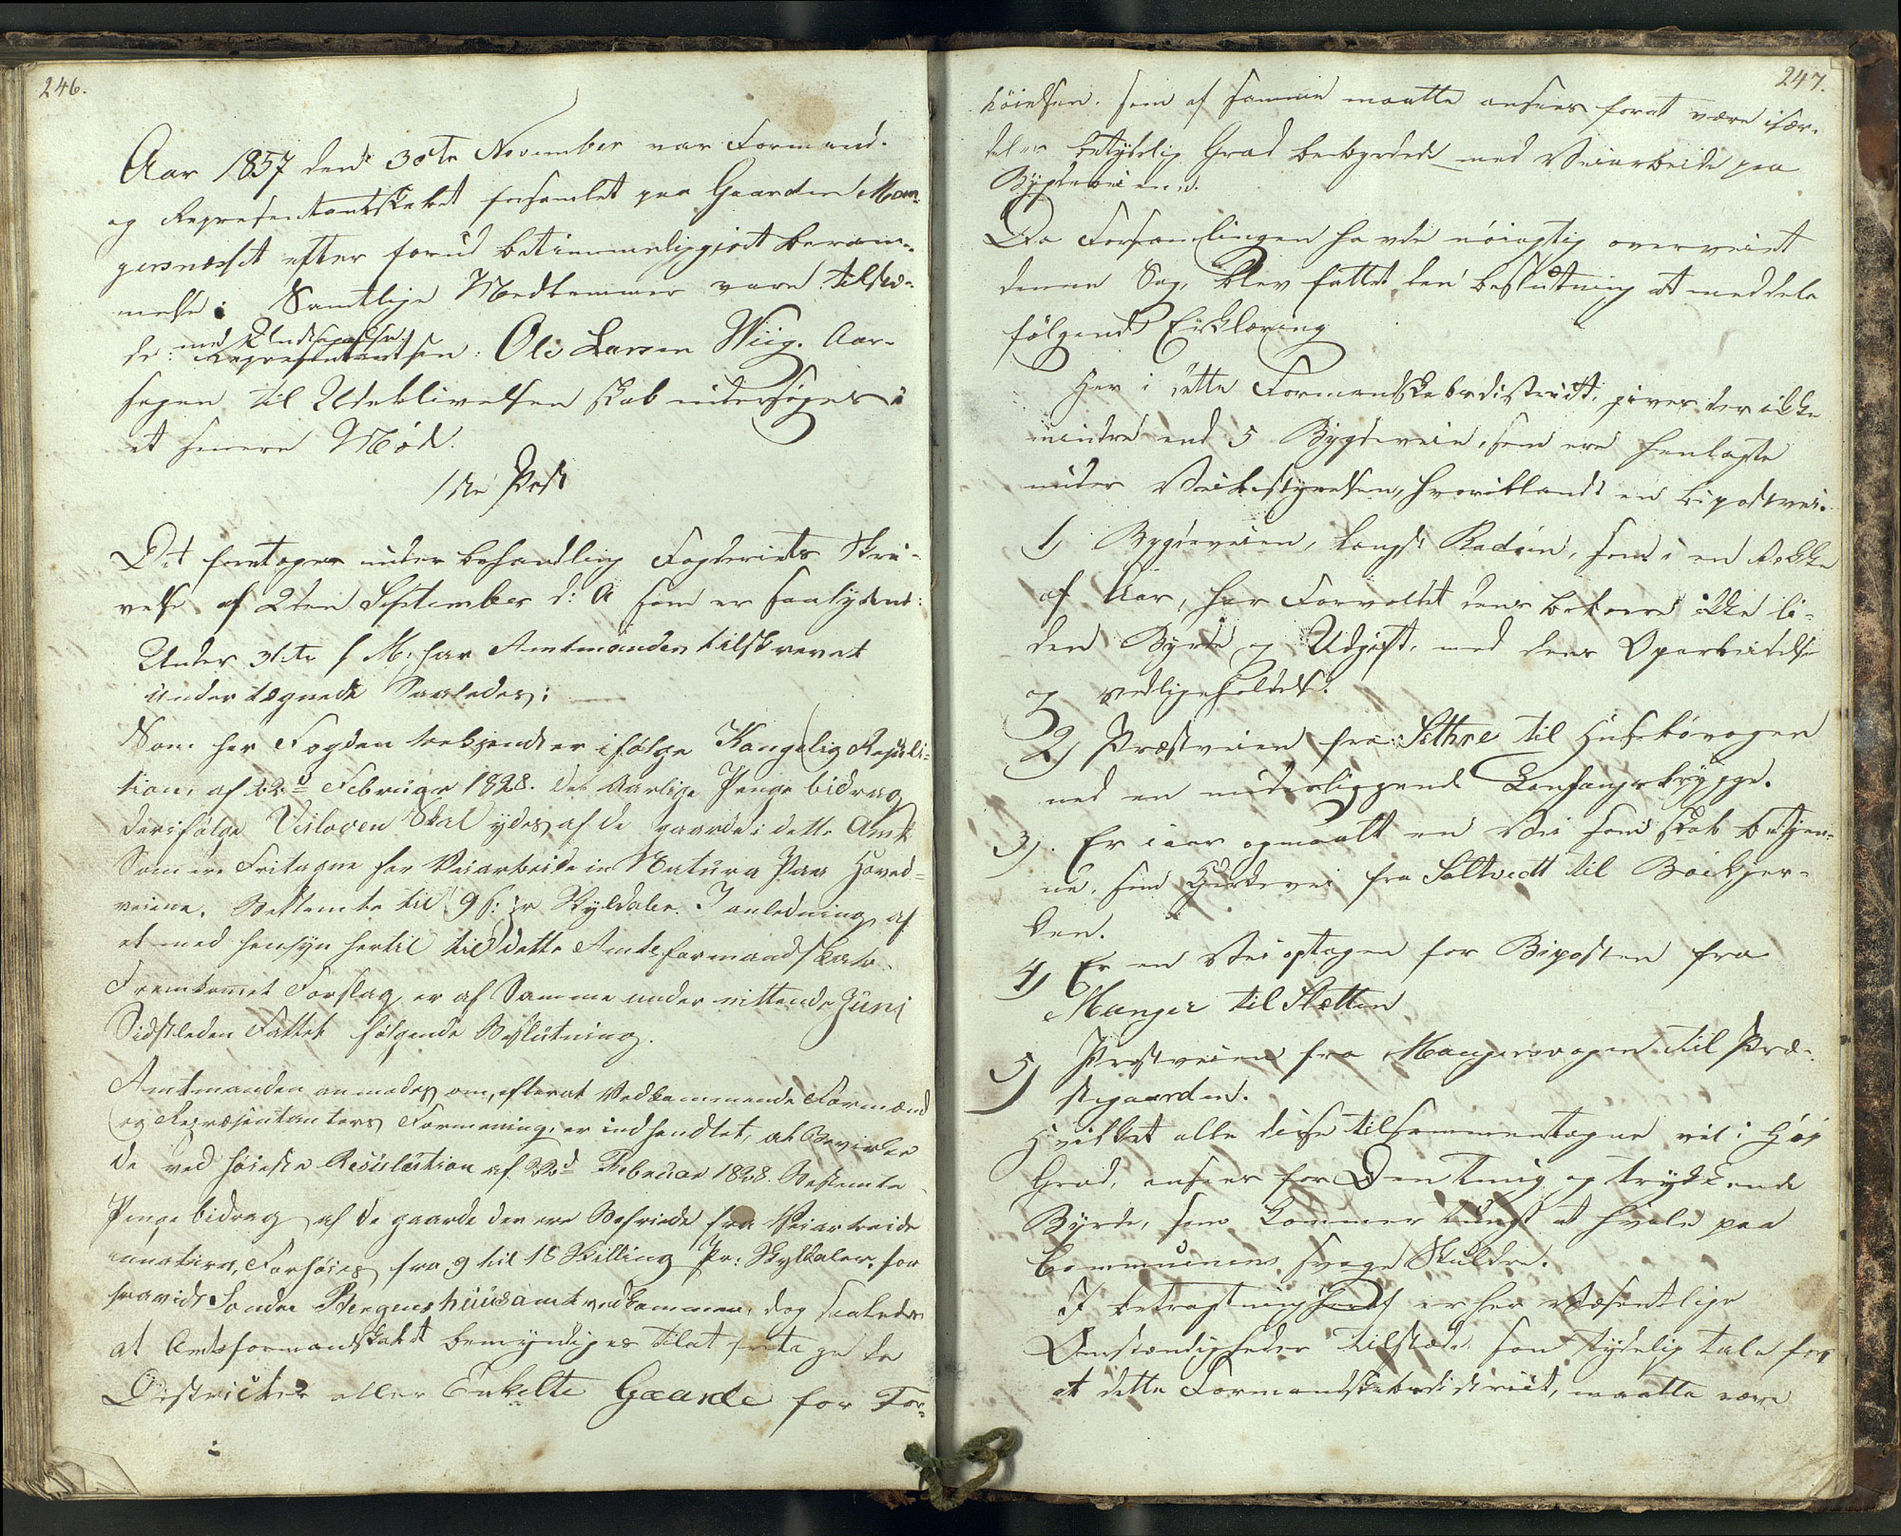 246.
Aar 1857 den 30te November var Formand-
og Repræsentantskabet forsamlet paa Gaarden Man-
gersnæsset efter forud betimmeliggjort beram-
melse. Samtlige Medlemmer vare tilste-
de: med Undtagelse Repræsentantsen: Ole Larsen Wiig. Aar-
sagen til Udeblivelsen skal undersøges i
et senere Mød.
1ste Post
Det foretoges under behandling Fogderiets Skri-
velse af 2den September d: A som er saalydende:
Under 31te f M: har Amtmanden tilskrevet
undertegnede Saaledes:
Som Her Fogden bekjendt er ifølge Kongelig Resolu-
tion, af 22d Februar 1828. det Aarlige Penge bidrag
der ifølge Veiloven Skal ydes af de gaarde i dette Amt
Som ere Fritagne for Veiarbeide in Natura Paa Hoved-
veiene. Bestemte til 9 s: pr Skyldaler. I anledning af
et med hensyn hertil til dette Amtsformandskab
Fremkomet Forslag er af Samme under nittende Juni
Sidstleden Fattet følgende Beslutning.
Amtmanden anmodes om, efterat Vedkommende Formænd
og Repræsentanters Formening er indhendtet, at Bevirke
de ved høieste Resolution af 22d Februar 1828. Bestemte
Penge bidrag af de gaarde der ere Befriede fra Veiarbeide
innatura, Forhøies fra 9 til 18 Skilling Pr: Skyldaler, for
saavidt Søndre Bergenshuusamt vedkommer, dog saaledes
at Amtsformandskabet bemyndiges til at fritage de
Districter eller Enkelte Gaarde for For-
247.
høielsen. som af samme maatte ansees forat være især-
deles betydelig Grad bebyrdede med Veiarbeide paa
Bygdeveiene.
Da Forsamlingen havde nøiagtig overveiet
denne Sag, blev fattet den beslutning at meddele
følgende Erklæring
Her i dette Formandskabsdistrict, gives der ikke
mindre end 5 Bygdeveie, som ere henlagte
under Veibestyrelsen, hvoriblandt en bipostvei.
1) Bygdeveien, langs Radøen, som i en Rekke
af Aar, har Forvoldet dens beboere ikke li-
den Byrde og Udgift, med dens Oparbeidelse
og vedligeholdelse.
2) Præstveien fra Sæthre til Husebøvogen
med en underliggende Brygge.
3) Er i aar opmaalt en Vei som skal betjen-
ne, som Bygdevei fra Soltvedt til Bøekjer-
ken.
4) Er en Vei optagen for Biposten fra
Manger til Sletten
5) Præstveien fra Mangersvogen til Præ-
stegaarden.
Hvilket alle disse tilsammentagne vil i Høi
Grad, ansees for Den tung og trykkende
Byrde, som kommer tungt at hvile paa
Communens svage Skuldre.
I betragtning heraf er her Væsentlige
Omstændigheder tilstæde som tydelig tale for
at dette Formandskabsdistrict, maatte være